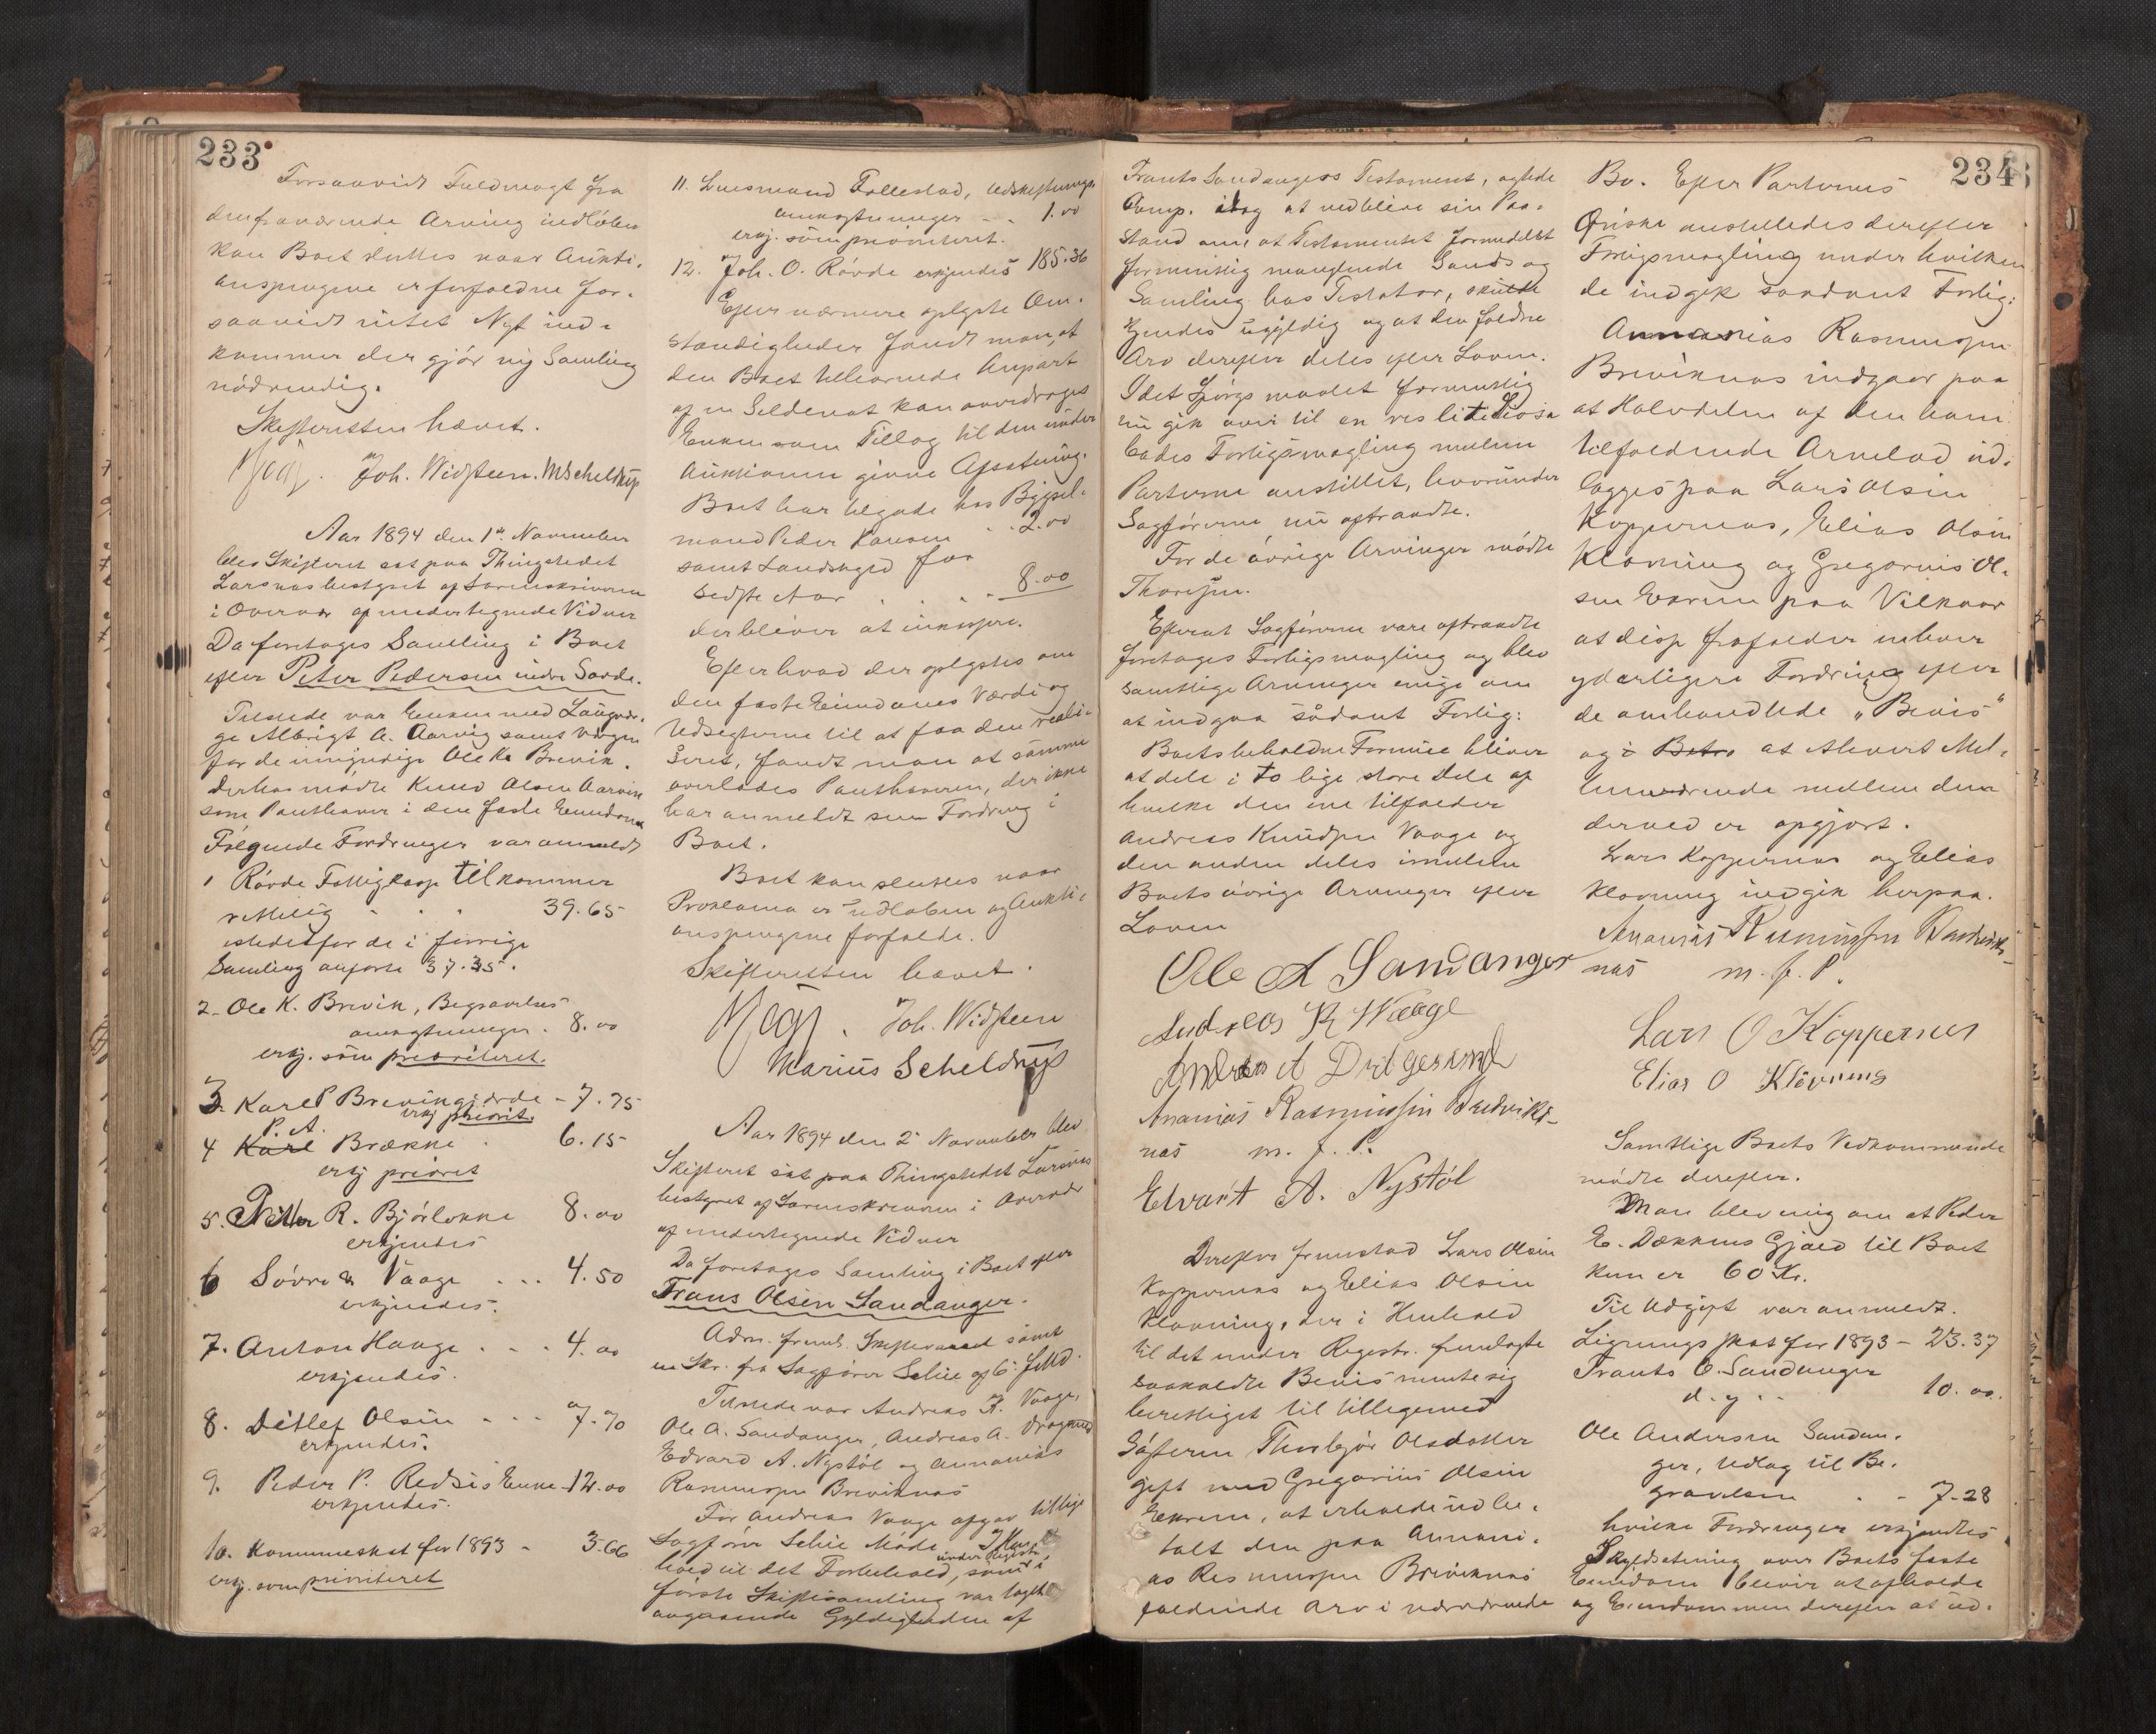 233
Forsaavidt Fuldmagt fra
denfraværende Arving indløber
kan Boet sluttes naar Aukti-
onspengene er forfaldne for-
saavidt intet Nyt ind-
kommer der gjør ny Samling
nødvendig.
Skifteretten hævet.
Joh. Widsteen. MScheldrup
Aar 1894 den 1ste November
blev Skifteret sat paa Thingstedet
Larsnæs bestyret af Sorenskriveren
i Overvær af undertegnede Vidner
Da foretoges Samling i Boet
efter Peter Pedersen indre Sørde.
Tilstede var Enken med Laugvær-
ge Albrigt A. Aarvig samt Værgen
for de umyndige Ole K. Brevik.
Derhos mødte Knud Olsen Aarvik
som Panthaver i den faste Eiendom
Følgende Fordringer var anmeldt
1 Røvde Fattigkasse tilkommer
rettelig - - - 39.65
istedetfor de i forrige
Samling anførte 37.35.
2. Ole K. Brevik, Begravelses
omkostninger. 8.00
erkj. som prioriteret.
3. Karl P Brevingjerde - 7.75
erkj priorit.
P. A.
4 Karl Brække . 6.15
erkj prioret
5. Petter R. Bjørlokke 8.00
erkjendes
6 Sövre Vaage ... 4.50
erkjendes.
7. Anton Hauge . - . 4.00
erkjendes.
8. Ditlef Olsen - - - 7.70
erkjendes.
9. Peder P. Redsis Enke - 12.00
erkjendes.
10. Kommuneskat for 1893 - 3.66
erkj. som prioriteret
11. Lensmand Follestad, Udskiftnings
omkostninger - - 1.00
erkj. som prioriteret.
12. Joh. O. Røvde erkjendes 185.36
Efter nærmere oplyste Om-
stændigheder fandt man, at
den Boet tilhørende Anpart
af en Sildenot kan overdrages
Enken som Tillæg til den under
Auktionen givne Afsætning.
Boet har tilgode hos Bygsel-
mand Peder Hansen . . 2.00
samt Landskyld for
sidste Aar . . . . 8.00
der bliver at inkassere.
Efter hvad der oplystes om
den faste Eiendoms Værdi og
Udsigterne til at faa den reali-
seret, fandt man at samme
overlades Panthaveren, der ikke
har anmeldt sin Fordring i
Boet.
Boet kan sluttes naar
Proklama er udløben og Aukti-
onspengene forfaldt.
Skifteretten hævet.
Joh. Widsteen
Marius Scheldrup
Aar 1894 den 2 November blev
Skifteret sat paa Thingstedet Larsnæs
bestyret af Sorenskriveren i Overvær
af undertegnede Vidner
Da foretoges Samling i Boet efter
Frans Olsen Sandanger.
Adm. freml. Skiftevarsel samt
en Skr. fra Sagfører Selie af 6 f Md.
Tilstede var Andreas K. Vaage,
Ole A. Sandanger, Andreas A. Dragesund
Edvard A. Nystøl og Annanias
Rasmussen Breviknæs
For Andreas Vaage afgav tillige
Sagfører Selie Møde. I Hen-
under Registr
hold til det Forbehold, som i
første Skiftesamling var taget
angaaende Gyldigheden af
234
Frants Sandangers Testament, agtede
Comp. idag at vedblive sin Paa-
stand om, at Testamentet formedelst
formentlig manglende Sands og
Samling hos Testator, skulde
kjendes ugyldig og at den faldne
Arv derefter deles efter Loven.
Idet Spørgsmaalet formentlig
nu gik over til en res litidiosa
bødes Forligsmægling mellem
Parterne anstillet, hvorunder
Sagførerne nu aftraadte.
For de øvrige Arvinger mødte
Thoresen.
Efterat Sagførerne vare aftraadte
foretoges Forligsmægling og blev
samtlige Arvinger enige om
at indgaa sådant Forlig:
Boets beholdne Formue bliver
at dele i to lige store Dele af
hvilke den ene tilfalder
Andreas Knudsen Vaage og
den anden deles imellem
Boets øvrige Arvinger efter
Loven
Ole A Sandanger
Andreas K Waage
Andreas A Dragesund
Ananias Rasmussen Bredviks-
næs m. f. P.
Edvart A. Nystöl
Derefter fremstod Lars Olsen
Koppernæs og Elias Olsen
Kløvning, der i Henhold
til det under Registr. fremlagte
saakaldte Bevis mente sig
berettiget til tilligemed
Søsteren Thorbjør Olsdatter
gift med Gregorius Olsen
Ekrem, at erholde udbe-
talt den paa Annani-
as Rasmussen Breviknæs
faldende Arv i nærværende
Bo. Efter Parternes
Ønske anstilledes derefter
Forligsmægling under hvilken
de indgik saadant Forlig:
Annanias Rasmussen
Breviknæs indgaar paa
at Halvdelen af den ham
tilfaldende Arvelod ud-
lægges paa Lars Olsen
Koppernæs, Elias Olsen
Kløvning og Gregorius Ol-
sen Ekrem paa Vilkaar
at disse frafalder enhver
yderligere Fordring efter
de omhandlede "Bevis"
og i Betra at Alvert Mel-
lemværende mellem dem
derved er opgjort.
Lars Koppernæs og Elias
Kløvning indgik herpaa.
Ananias Rasmussen Bredviks-
næs m. f. P.
Lars O Koppernæs
Elias O Klövning
Samtlige Boets Vedkommende
mødte derefter.
Man blev enig om at Peder
E. Dækkens Gjæld til Boet
kun er 60 Kr.
Til Udgift var anmeldt.
Ligningsskat for 1893 - 23.37
Frants O. Sandanger
d. y. . . 10.00.
Ole Andersen Sandan-
ger, Udlæg til Be-
gravelsen . - 7.28
hvilke Fordringer erkjendtes
Skyldsetning over Boets faste
Eiendom bliver at afholde
og Eiendommen derefter at ud-